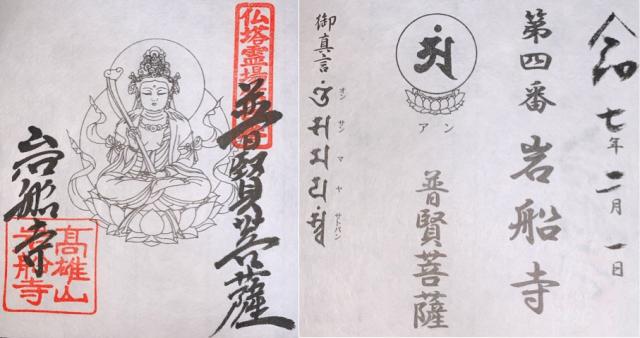 仏塔霊場
普賢菩薩
岩船寺
高雄山
岩船寺
令和
七年二月一日
第四番 岩船寺
アン
普賢菩薩
御真言
オン サン マ ヤ サトバン